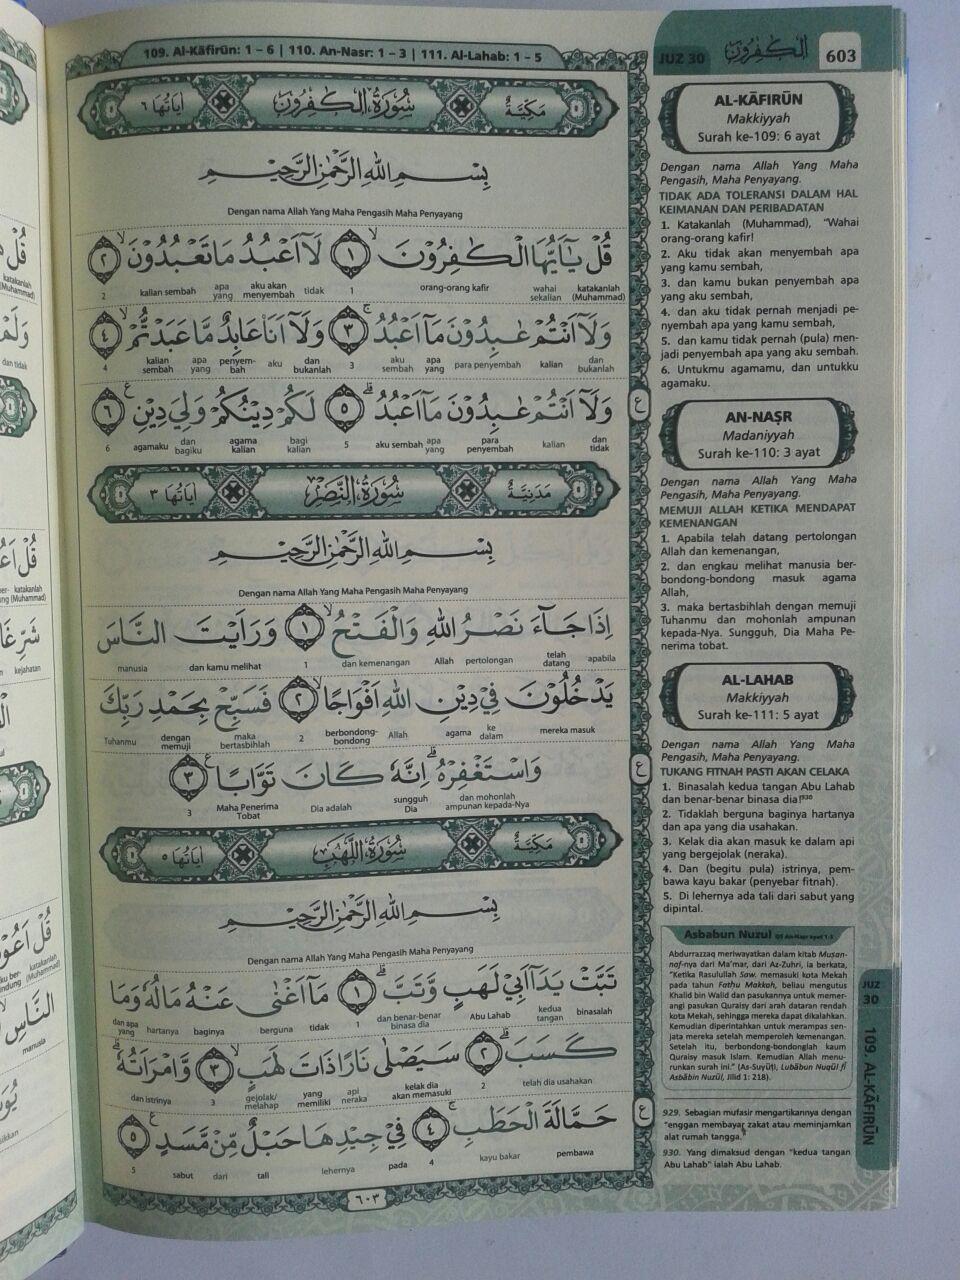 109. Al-Kāfirūn: 1 – 6 | 110. An-Nasr: 1 – 3 | 111. Al-Lahab: 1 – 5
مَكِّيَّةٌ سُوْرَةُ الْكٰفِرُوْنَ اٰيَاتُهَا ٦
بِسْمِ اللّٰهِ الرَّحْمٰنِ الرَّحِيْمِ
Dengan nama Allah Yang Maha Pengasih Maha Penyayang
قُلْ يٰٓاَيُّهَا الْكٰفِرُوْنَۙ ١ لَآ اَعْبُدُ مَا تَعْبُدُوْنَۙ ٢
katakanlah (Muhammad) wahai sekalian orang-orang kafir 1 tidak aku akan menyembah apa yang kalian sembah 2
وَلَآ اَنْتُمْ عٰبِدُوْنَ مَآ اَعْبُدُۚ ٣ وَلَآ اَنَا۠ عَابِدٌ مَّا عَبَدْتُّمْۙ ٤
dan bukanlah kalian para penyembah apa yang aku sembah 3 dan bukanlah aku penyembah apa yang kalian sembah 4
وَلَآ اَنْتُمْ عٰبِدُوْنَ مَآ اَعْبُدُۗ ٥ لَكُمْ دِيْنُكُمْ وَلِيَ دِيْنِ ࣖ ٦
dan tidak kalian para penyembah apa yang aku sembah 5 bagi kalian agama kalian dan bagiku agamaku 6
مَدَنِيَّةٌ سُوْرَةُ النَّصْرِ اٰيَاتُهَا ٣
بِسْمِ اللّٰهِ الرَّحْمٰنِ الرَّحِيْمِ
Dengan nama Allah Yang Maha Pengasih Maha Penyayang
اِذَا جَاۤءَ نَصْرُ اللّٰهِ وَالْفَتْحُۙ ١ وَرَاَيْتَ النَّاسَ
apabila telah datang pertolongan Allah dan kemenangan 1 dan kamu melihat manusia
يَدْخُلُوْنَ فِيْ دِيْنِ اللّٰهِ اَفْوَاجًاۙ ٢ فَسَبِّحْ بِحَمْدِ رَبِّكَ
mereka masuk ke dalam agama Allah berbondong-bondong 2 maka bertasbihlah dengan memuji Tuhanmu
وَاسْتَغْفِرْهُۗ اِنَّهٗ كَانَ تَوَّابًا ࣖ ٣
dan mohonlah ampunan kepada-Nya sungguh Dia Dia adalah Maha Penerima Tobat 3
مَكِّيَّةٌ سُوْرَةُ اللَّهَبِ اٰيَاتُهَا ٥
بِسْمِ اللّٰهِ الرَّحْمٰنِ الرَّحِيْمِ
Dengan nama Allah Yang Maha Pengasih Maha Penyayang
تَبَّتْ يَدَآ اَبِيْ لَهَبٍ وَّتَبَّۗ ١ مَآ اَغْنٰى عَنْهُ مَالُهٗ وَمَا
binasalah kedua tangan Abu Lahab dan benar-benar binasa dia 1 tidak berguna baginya hartanya dan apa yang
كَسَبَۗ ٢ سَيَصْلٰى نَارًا ذَاتَ لَهَبٍۙ ٣ وَّامْرَاَتُهٗۗ
telah dia usahakan 2 kelak dia akan memasuki api neraka yang memiliki gejolak/melahap 3 dan istrinya
حَمَّالَةَ الْحَطَبِۚ ٤ فِيْ جِيْدِهَا حَبْلٌ مِّنْ مَّسَدٍ ࣖ ٥
pembawa kayu bakar 4 pada lehernya tali dari sabut 5
٦٠٣
JUZ 30
الكٰفرون
603
AL-KĀFIRŪN
Makkiyyah
Surah ke-109: 6 ayat
Dengan nama Allah Yang Maha
Pengasih, Maha Penyayang.
TIDAK ADA TOLERANSI DALAM HAL
KEIMANAN DAN PERIBADATAN
1. Katakanlah (Muhammad), "Wahai
orang-orang kafir!
2. Aku tidak akan menyembah apa
yang kamu sembah,
3. dan kamu bukan penyembah apa
yang aku sembah,
4. dan aku tidak pernah menjadi pe-
nyembah apa yang kamu sembah,
5. dan kamu tidak pernah (pula) men-
jadi penyembah apa yang aku sembah.
6. Untukmu agamamu, dan untukku
agamaku.
AN-NAṢR
Madaniyyah
Surah ke-110: 3 ayat
Dengan nama Allah Yang Maha
Pengasih, Maha Penyayang.
MEMUJI ALLAH KETIKA MENDAPAT
KEMENANGAN
1. Apabila telah datang pertolongan
Allah dan kemenangan,
2. dan engkau melihat manusia ber-
bondong-bondong masuk agama
Allah,
3. maka bertasbihlah dengan memuji
Tuhanmu dan mohonlah ampunan
kepada-Nya. Sungguh, Dia Maha Pe-
nerima tobat.
AL-LAHAB
Makkiyyah
Surah ke-111: 5 ayat
Dengan nama Allah Yang Maha
Pengasih, Maha Penyayang.
TUKANG FITNAH PASTI AKAN CELAKA
1. Binasalah kedua tangan Abu Lahab
dan benar-benar binasa dia!⁹³⁰
2. Tidaklah berguna baginya hartanya
dan apa yang dia usahakan.
3. Kelak dia akan masuk ke dalam api
yang bergejolak (neraka).
4. Dan (begitu pula) istrinya, pem-
bawa kayu bakar (penyebar fitnah).
5. Di lehernya ada tali dari sabut yang
dipintal.
Asbabun Nuzul QS An-Naṣr ayat 1-3
Abdurrazzaq meriwayatkan dalam kitab Musan-
naf-nya dari Ma'mar, dari Az-Zuhri, ia berkata,
"Ketika Rasulullah Saw. memasuki kota Mekah
pada tahun Fatḥu Makkah, beliau mengutus
Khalid bin Walid dan pasukannya untuk memer-
angi pasukan Quraisy dari arah dataran rendah
kota Mekah, sehingga mereka dapat dikalahkan.
Kemudian diperintahkan untuk merampas sen-
jata mereka setelah memperoleh kemenangan.
Setelah itu, berbondong-bondonglah kaum
Quraisy masuk Islam. Kemudian Allah menu-
runkan surah ini." (As-Suyūṭī, Lubābun Nuqūl fī
Asbābin Nuzūl, Jilid 1: 218).
929. Sebagian mufasir mengartikannya dengan
"enggan membayar zakat atau meminjamkan
alat rumah tangga."
930. Yang dimaksud dengan "kedua tangan
Abu Lahab" ialah Abu Lahab.
JUZ
30
109. AL-KĀFIRŪN